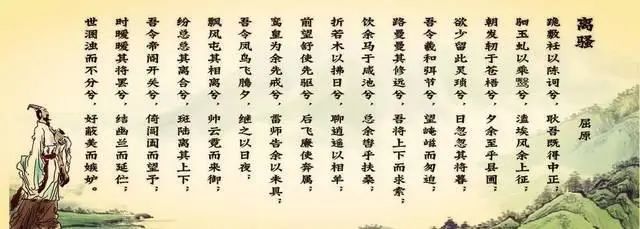 离骚
屈原
跪敷衽以陈词兮，耿吾既得中正；
驷玉虬以乘鹥兮，溘埃风余上征；
朝发轫于苍梧兮，夕余至乎县圃；
欲少留此灵琐兮，日忽忽其将暮；
吾令羲和弭节兮，望崦嵫而勿迫；
路曼曼其修远兮，吾将上下而求索；
饮余马于咸池兮，总余辔乎扶桑；
折若木以拂日兮，聊逍遥以相羊；
前望舒使先驱兮，后飞廉使奔属；
鸾皇为余先戒兮，雷师告余以未具；
吾令凤鸟飞腾夕，继之以日夜；
飘风屯其相离兮，帅云霓而来御；
纷总总其离合兮，斑陆离其上下；
吾令帝阍开关兮，倚阊阖而望予；
时暧暧其将罢兮，结幽兰而延伫；
世溷浊而不分兮，好蔽美而嫉妒。